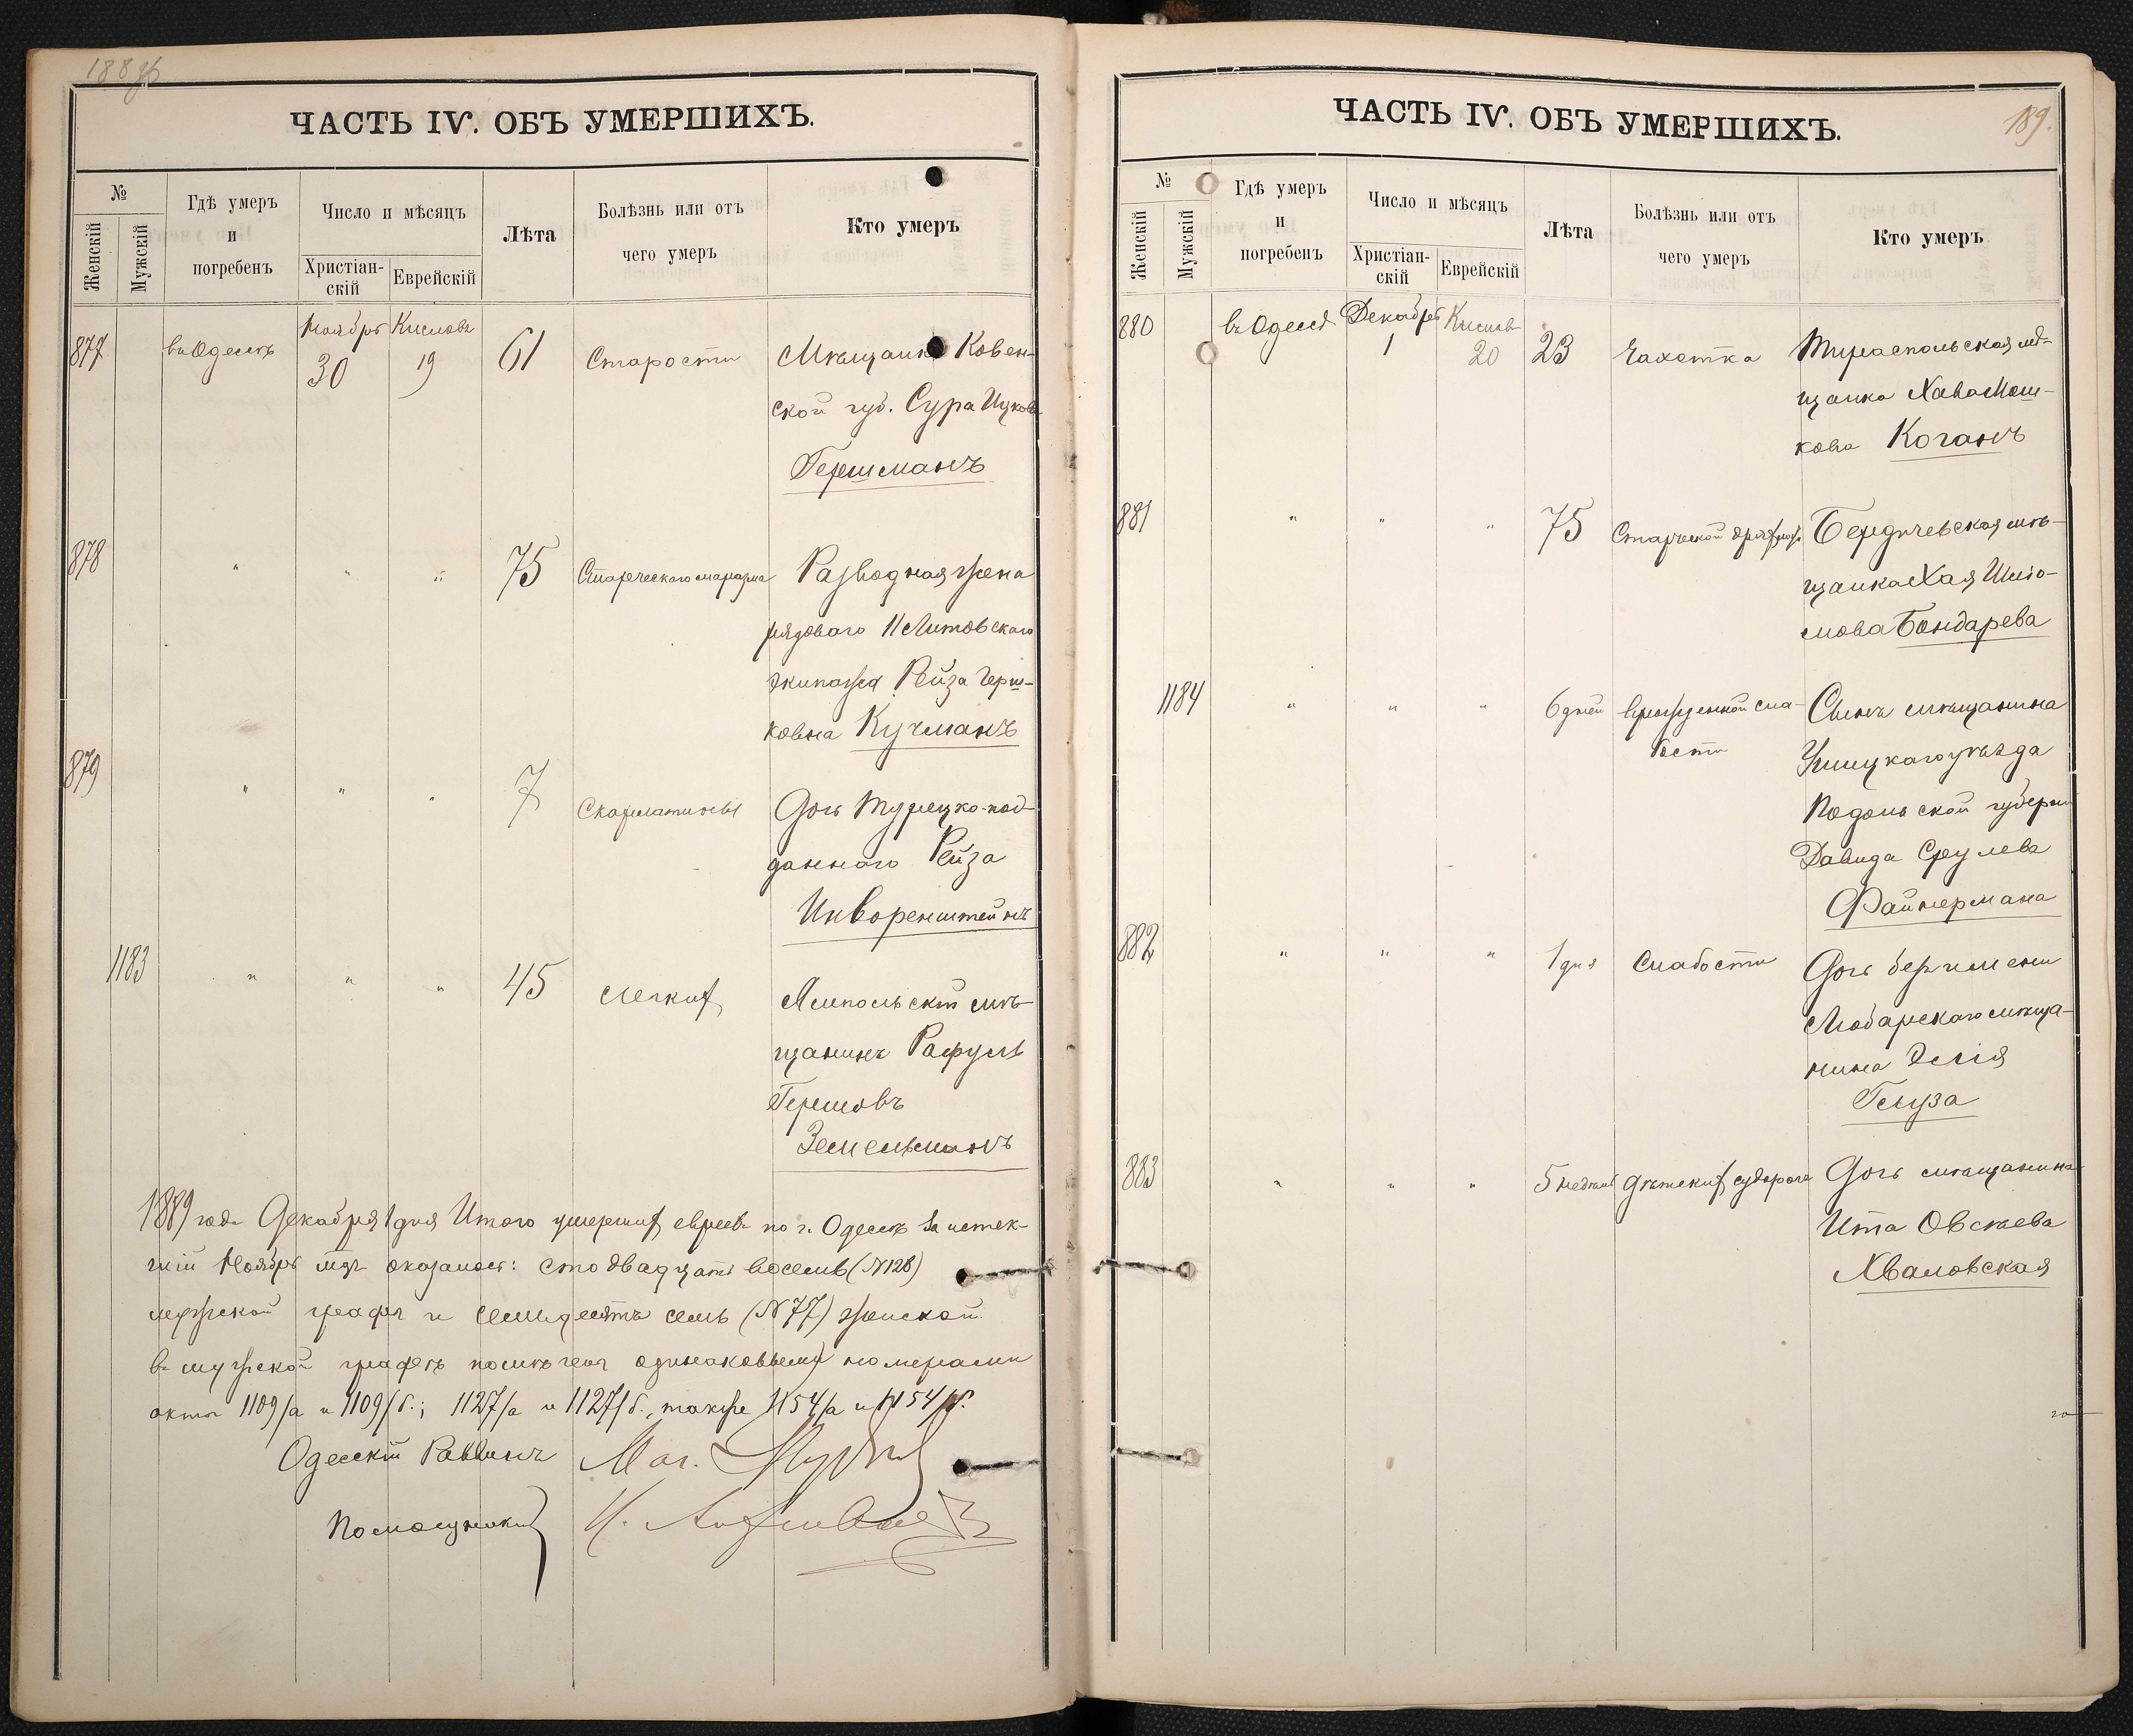 188об
ЧАСТЬ IV. ОБЪ УМЕРШИХЪ.
№
Женскій
Мужскій
Гдѣ умеръ
и
погребенъ
Число и мѣсяцъ
Христіан-
скій
Еврейскій
Лѣта
Болѣзнь или отъ
чего умеръ
Кто умеръ
877 въ Одессѣ Ноябрь 30 Кисловъ 19 61 Старости Мѣщанка Ковен-
ской губ. Сура Ицкова
Гершманъ
878 " " " 75 Старческаго маразма Разводная жена
рядоваго 11 Литовскаго
экипажа Рейза Герш-
ковна Кучманъ
879 " " " 7 Скарлатины Дочь Турецко-под-
даннаго Рейза
Инворенштейнъ
1183 " " " 45 Легкихъ Ямпольскій мѣ-
щанинъ Рафуль
Гершовъ
Земельманъ
1889 года Декабря 1 дня Итого умершихъ евреевъ по г. Одессѣ за истек-
шій Ноябрь мѣц. оказалось: сто двадцать восемь (№128)
мужской графы и семьдесятъ семь (№77) женской.
въ мужской графѣ помѣчены одинаковыми номерами
акты 1109/а и 1109/б.; 1127/а и 1127/б., также 1154/а и 1154/б.
Одесскій Раввинъ Маг.
Помощникъ
189.
ЧАСТЬ IV. ОБЪ УМЕРШИХЪ.
№
Женскій
Мужскій
Гдѣ умеръ
и
погребенъ
Число и мѣсяцъ
Христіан-
скій
Еврейскій
Лѣта
Болѣзнь или отъ
чего умеръ
Кто умеръ
880 въ Одессѣ Декабрь 1 Кислов 20 23 Чахотка Тираспольская мѣ-
щанка Хава Мош-
кова Коганъ
881 " " " 75 Старческой дряхлости Бердичевская мѣ-
щанка Хая Шлио-
мова Бондарева
1184 " " " 6 дней врожденной сла-
бости Сынъ мѣщанина
Ушицкаго уѣзда
Подольской губерніи
Давида Срулева
Файнермана
882 " " " 1 дня Слабости Дочь безъ имени
Любарскаго мѣща-
нина Эллія
Гльуза
883 " " " 5 недѣль дѣтскихъ судорога Дочь мѣщанина
Ита Овсѣева
Хваловская